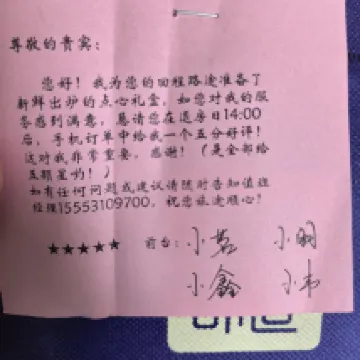 尊敬的贵宾：
您好！我为您的回程路途准备了
新鲜出炉的点心礼盒，如您对我的服
务感到满意，恳请您在退房日14:00
后，手机订单中给我一个五分好评！
这对我非常重要，感谢！（是全部给
五颗星的！）
如有任何问题或建议请随时告知值班
经理15553109700，祝您旅途顺心！
★★★★★ 前台：小茗 小明
小鑫 小韦